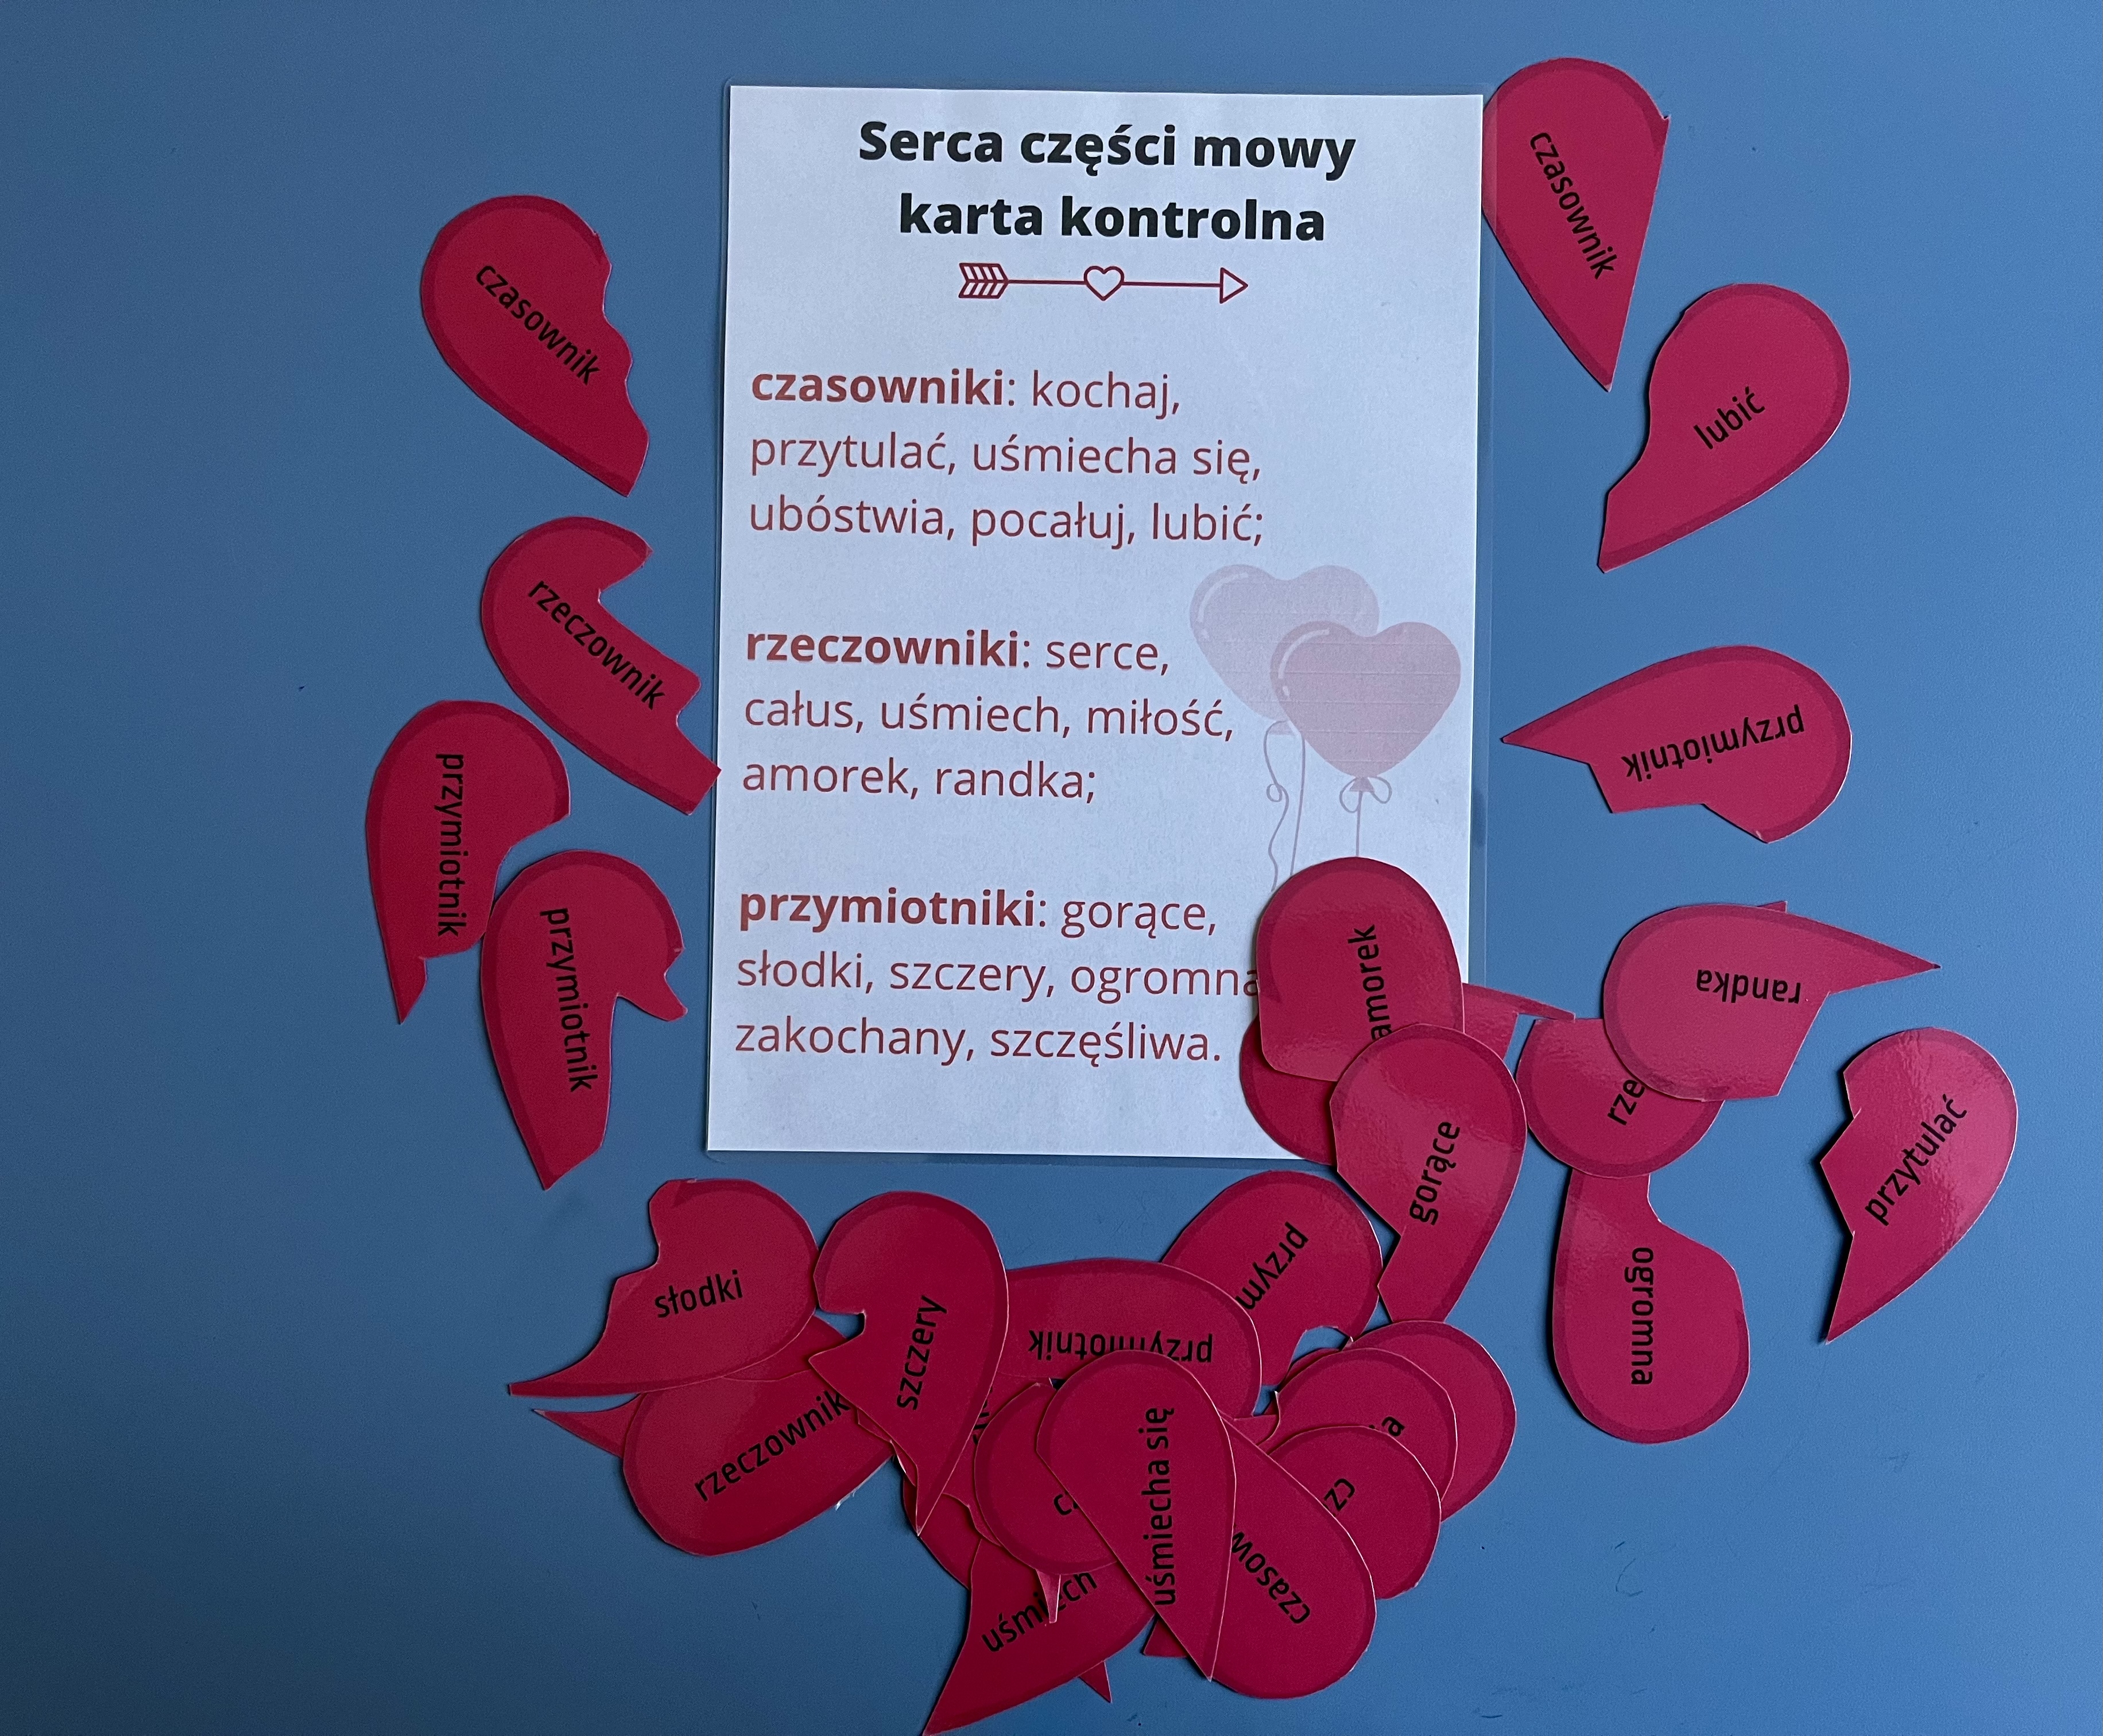 Serca części mowy
karta kontrolna
czasowniki: kochaj,
przytulać, uśmiecha się,
ubóstwia, pocałuj, lubić;
rzeczowniki: serce,
całus, uśmiech, miłość,
amorek, randka;
przymiotniki: gorące,
słodki, szczery, ogromna
zakochany, szczęśliwa.
czasownik
czasownik
lubić
rzeczownik
przymiotnik
przymiotnik
przymiotnik
amorek
randka
gorące
przytulać
ogromna
słodki
szczery
przymiotnik
rzeczownik
uśmiecha się
uśmiech